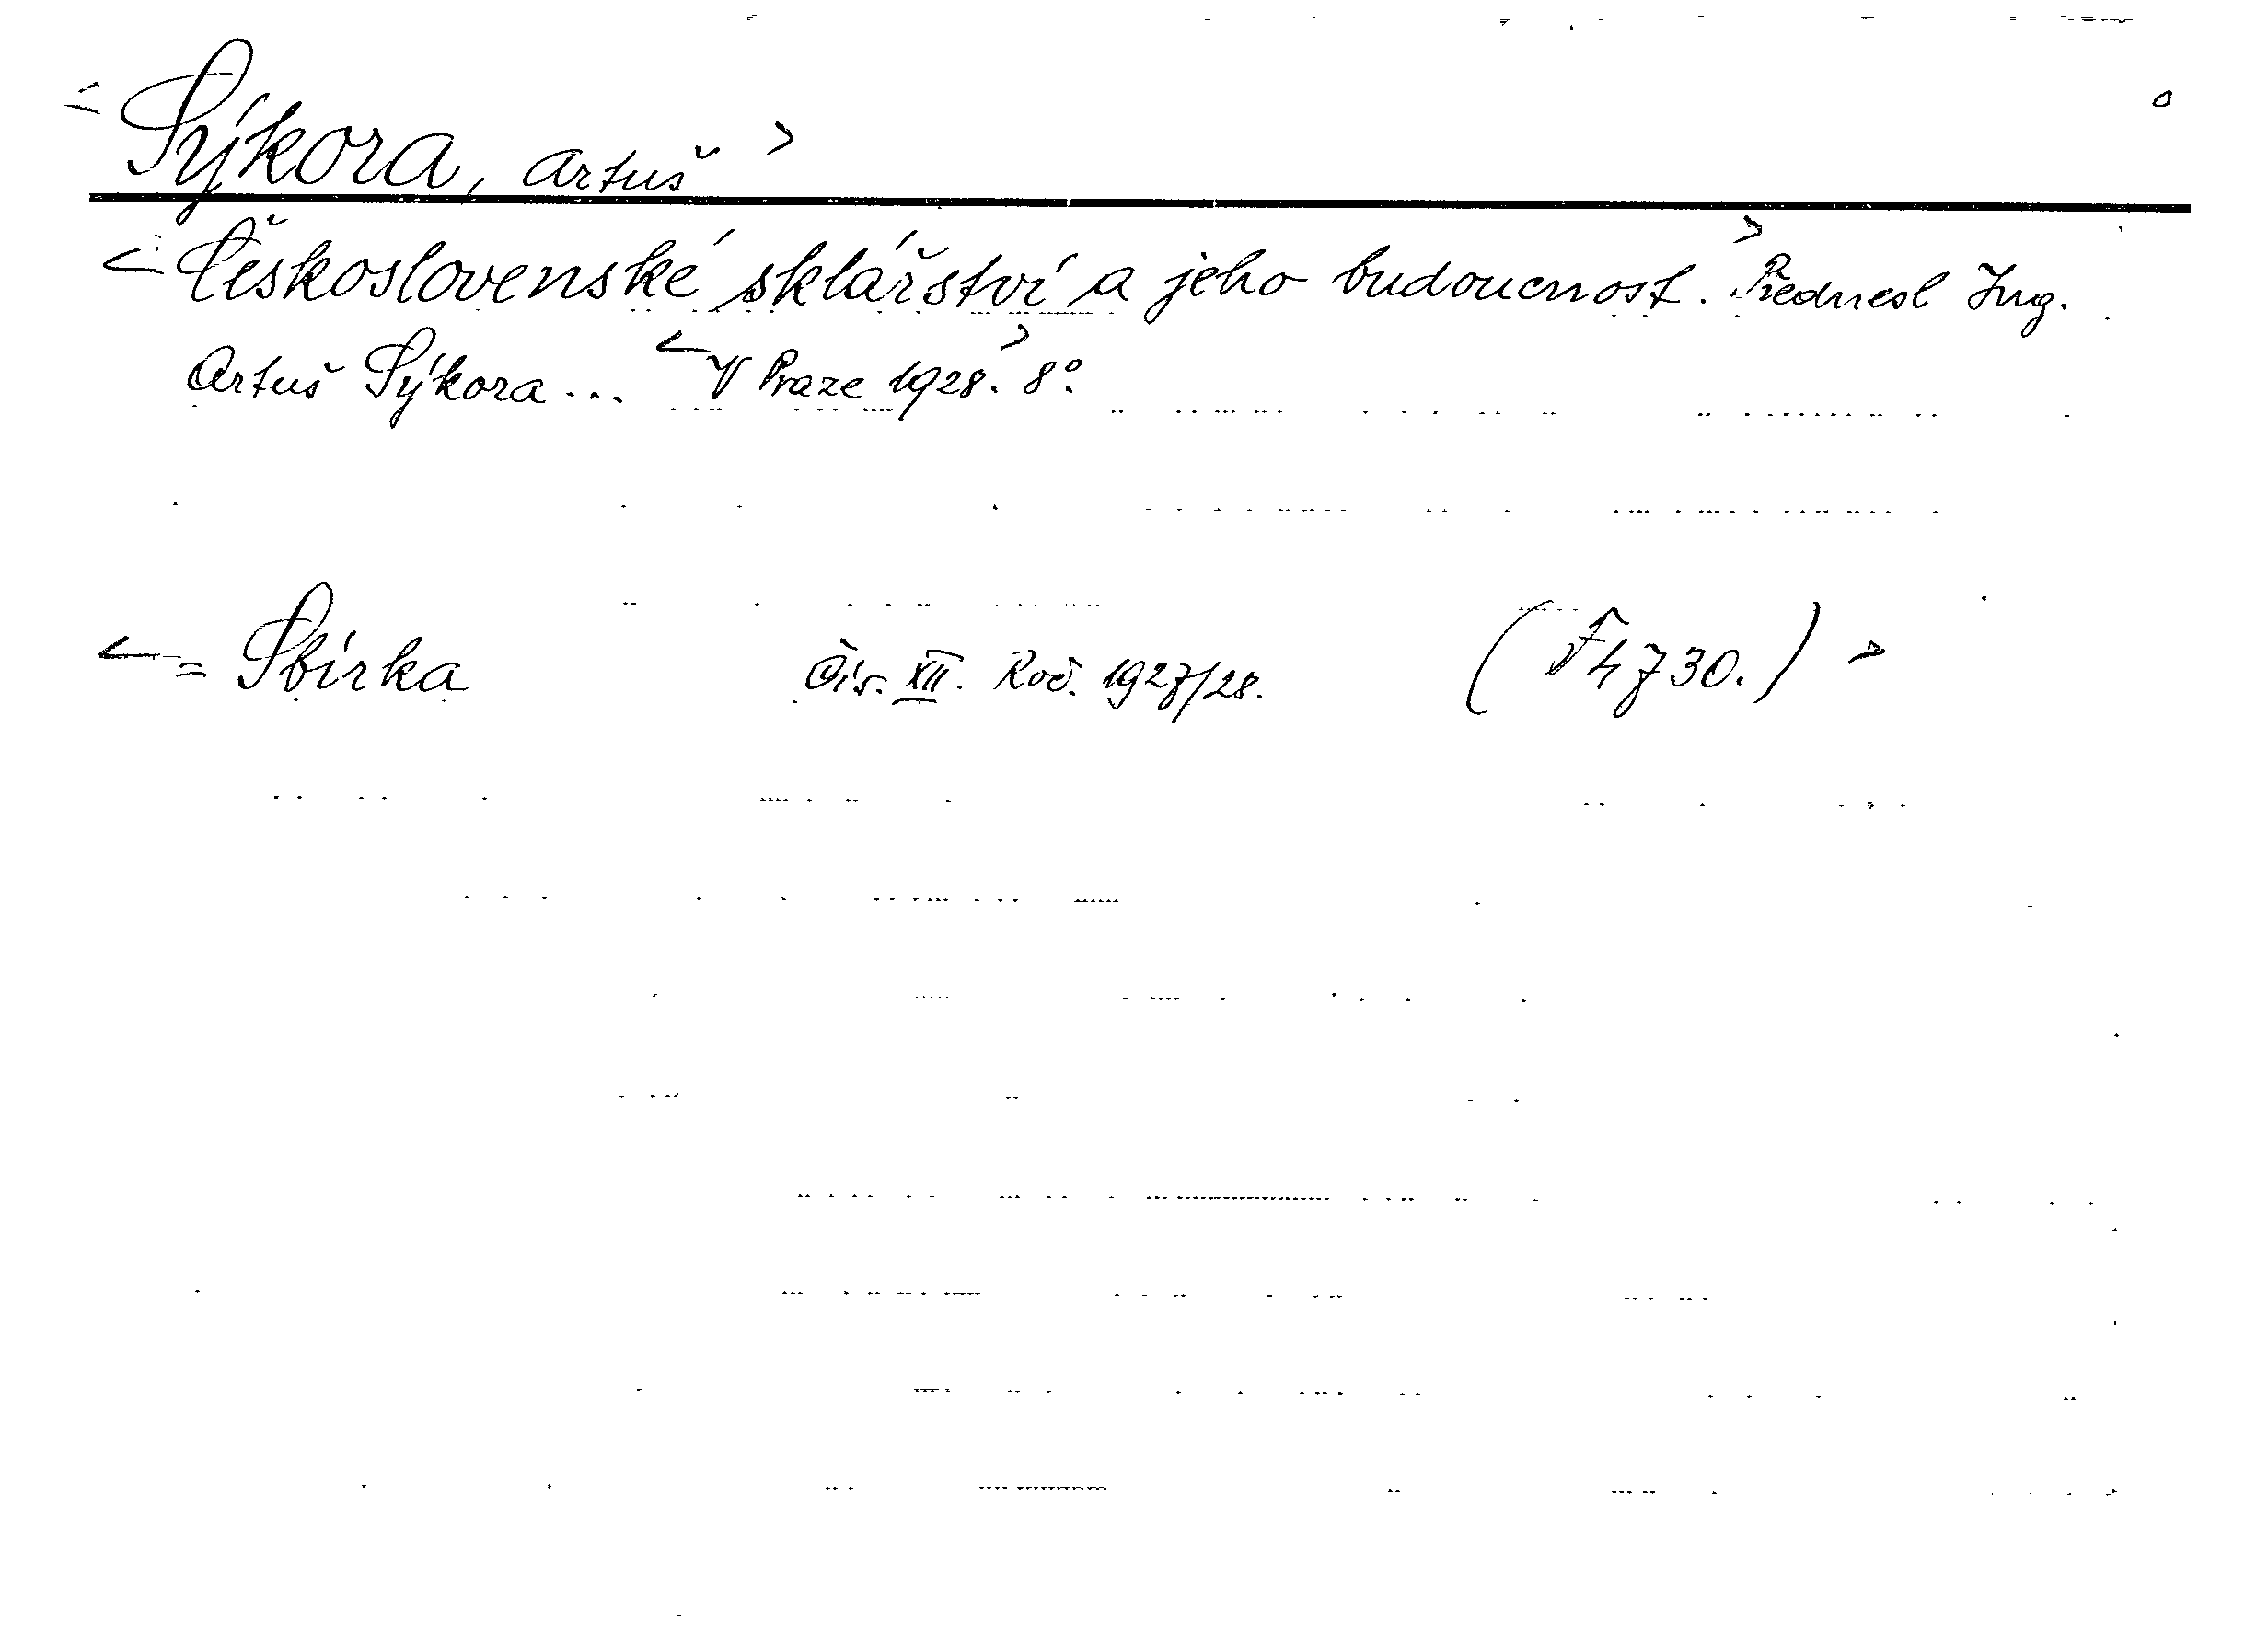 < Sýkora, Artuš >
< Československé sklářství a jeho budoucnost. > Přednesl Ing.
Artuš Sýkora ... < V Praze 1928. > 8°.
< = Sbírka Čís. XII. Roč. 1927/28. (F 4730.) >